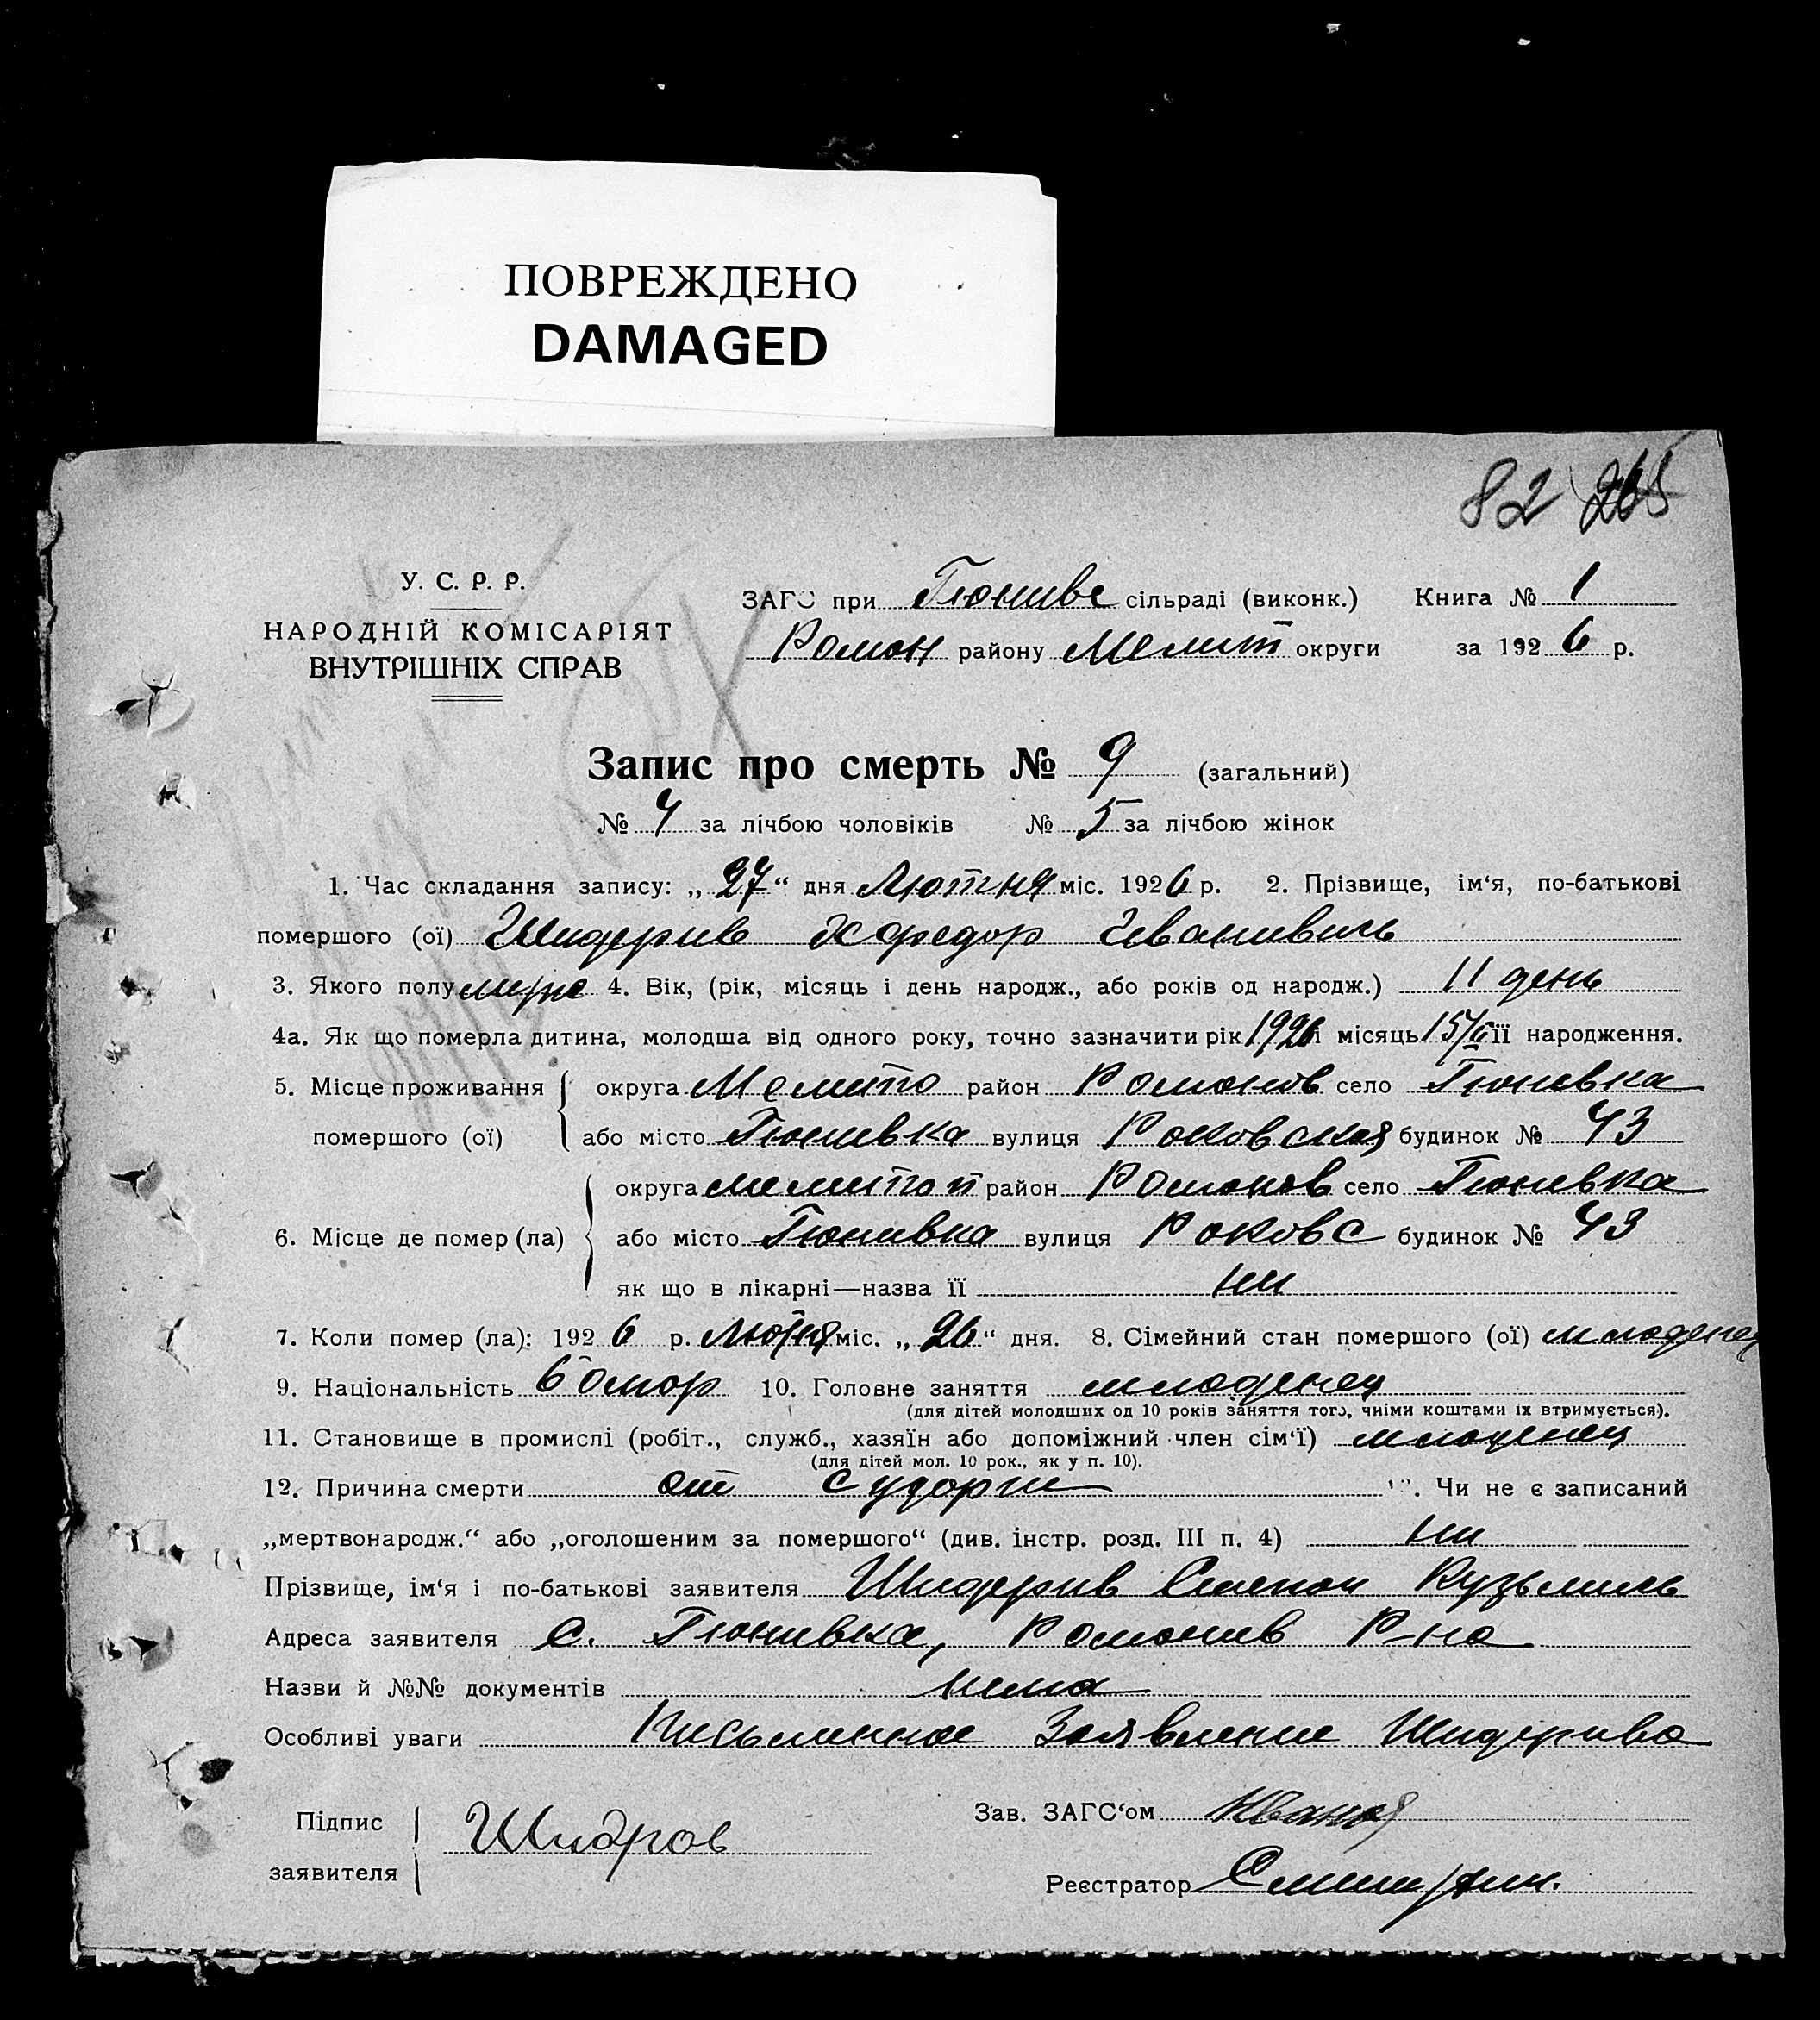 ПОВРЕЖДЕНО
DAMAGED
82
У. С. Р. Р.
НАРОДНІЙ КОМІСАРІЯТ
ВНУТРІШНІХ СПРАВ
ЗАГС при Тюшивс сільраді (виконк.) Книга № 1
Ромон району Мелит округи за 1926 р.
Запис про смерть № 9 (загальний)
№ 4 за лічбою чоловіків № 5 за лічбою жінок
1. Час складання запису: „27“ дня Лютня міс. 1926 р. 2. Прізвище, ім'я, по-батькові
помершого (ої) Шидерив Хфедор Иванивичь
3. Якого полу 4. Вік, (рік, місяць і день народж., або років од народж.) 11 день
4а. Як що померла дитина, молодша від одного року, точно зазначити рік 1926 місяць 15/II її народження.
5. Місце проживання округа Мелито район Romонов село Тюшивка
помершого (ої) або місто Тюшивка вулиця Роковская будинок № 43
округа мелитоп район Ромонов село Тюшивка
6. Місце де помер (ла) або місто Тюшивка вулиця Роковс будинок № 43
як що в лікарні—назва її ни
7. Коли помер (ла): 1926 р. Лютня міс. „26“ дня. 8. Сімейний стан помершого (ої) младенец
9. Національність 10. Головне заняття младенец
(для дітей молодших од 10 років заняття того, чиїми коштами їх втримується).
11. Становище в промислі (робіт., служб., хазяїн або допоміжний член сім'ї) младенец
(для дітей мол. 10 рок., як у п. 10).
12. Причина смерти от судорги . Чи не є записаний
„мертвонародж.“ або „оголошеним за помершого“ (див. інстр. розд. III п. 4) ни
Прізвище, ім'я і по-батькові заявителя Шидерив Степон Кузьмичь
Адреса заявителя С. Тюшивка, Ромонив Р-на
Назви й №№ документів нема
Особливі уваги Письменное Заявление Шидерива
Підпис
заявителя Шидров
Зав. ЗАГС'ом
Реєстратор